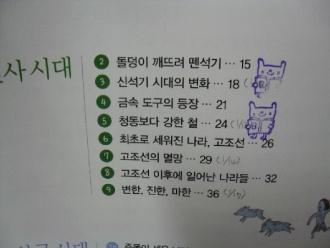 사 시대
2 돌덩이 깨뜨려 뗀석기 … 15
3 신석기 시대의 변화 … 18
4 금속 도구의 등장 … 21
5 청동보다 강한 철 … 24
6 최초로 세워진 나라, 고조선 … 26
7 고조선의 멸망 … 29
8 고조선 이후에 일어난 나라들 … 32
9 변한, 진한, 마한 … 36